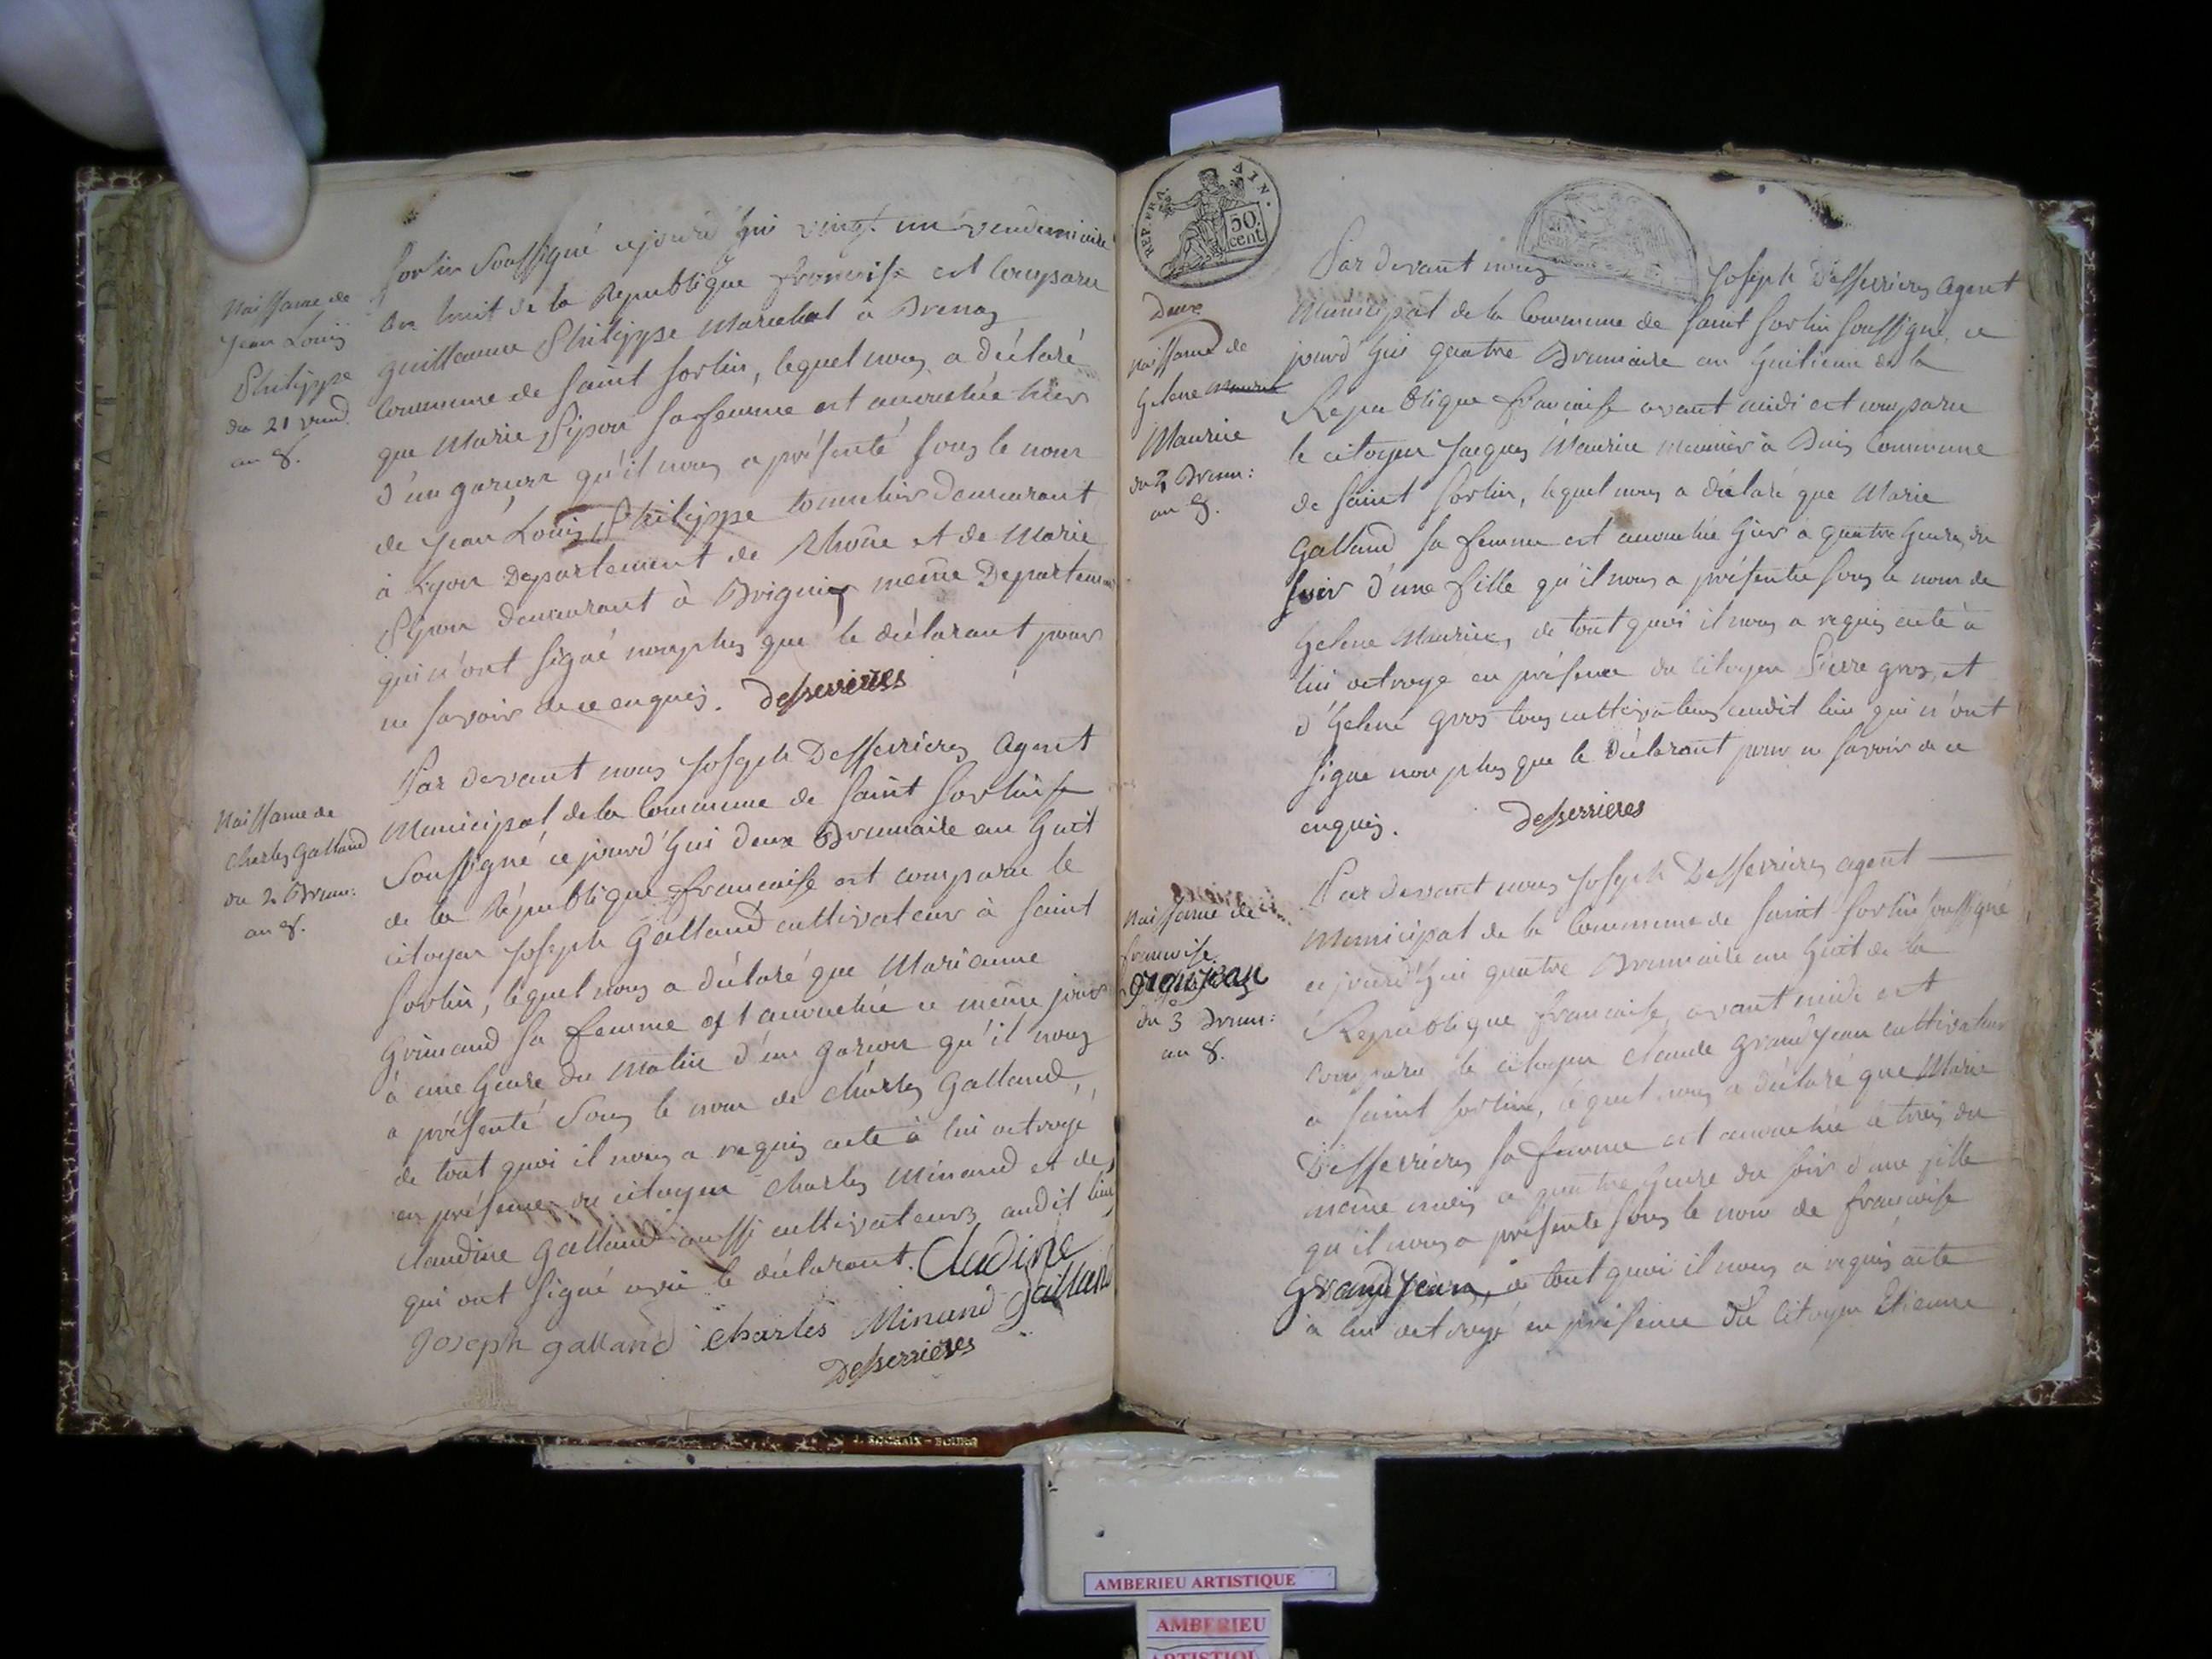 Sortin soussigné ce jourd'hui vingt un vendemiaire
an huit de la Republique francoise est comparu
guillaume Philippe marechal à Brenaz
Commune de Saint Sortin, lequel nous a déclaré
que Marie sa femme est accouchée hier
d'un garcon qu'il nous a présenté sous le nom
de Jean Louis Philippe demeurant
à Lyon Departement de Rhône et de Marie
demeurant à même Departement
qui n'ont signé non plus que le déclarant pour
ne savoir de ce enquis. Desserrieres
Naissance de
Jean Louis
Philippe
du 21 vend.
an 8.
Par devant nous Joseph Desserrieres Agent
Municipal de la Commune de Saint Sortin
Soussigné ce jourd'hui deux Brumaire an huit
de la République francaise est comparu le
citoyen Joseph Galland cultivateur à Saint
Sortin, lequel nous a déclaré que Marianne
sa femme est accouchée ce même jour
à une heure du matin d'un garcon qu'il nous
a présenté sous le nom de Charles Galland,
de tout quoi il nous a requis acte à lui octroyé
en présence du citoyen Charles Minand et de
Claudine Galland aussi cultivateurs audit lieu
qui ont signé avec le déclarant. Cladine
Joseph galland Charles Minand Galland
Desserrieres
Naissance de
Charles Galland
du 2 Brum:
an 8.
REP. FRA. AIN.
50.
cent.
Par devant nous Joseph Desserrieres Agent
Municipal de la Commune de Saint Sortin soussigné, ce
jourd'hui quatre Brumaire an huitieme de la
Republique francaise avant midi est comparu
le citoyen Jacques Maurice meunier à Buis Commune
de Saint Sortin, lequel nous a déclaré que Marie
Galland sa femme est accouchée hier à quatre heures du
soir d'une fille qu'il nous a présentée sous le nom de
helene Maurice, de tout quoi il nous a requis acte à
lui octroyé en présence du citoyen Pierre gros, et
d'helene gros tous cultivateurs audit lieu qui n'ont
signe non plus que le Déclarant pour ne savoir de ce
enquis. Desserrieres
Deux
naissance de
helene
Maurice
du 3 Brum:
an 8.
Par devant nous Joseph Desserrieres agent
Municipal de la Commune de Saint Sortin soussigné
ce jourd'hui quatre Brumaire an huit de la
Republique francaise, avant midi est
comparu le citoyen Claude grand Jean cultivateur
a Saint Sortin, lequel nous a déclaré que Marie
Desserrieres sa femme est accouchée le trois du
même mois a quatre heure du soir d'une fille
qu'il nous a présenté sous le nom de francoise
Grand Jean, de tout quoi il nous a requis acte
a lui octroyé en présence du Citoyen Etienne
Naissance de
francoise
du 3 Brum:
an 8.
AMBERIEU ARTISTIQUE
AMBERIEU
ARTISTIQUE